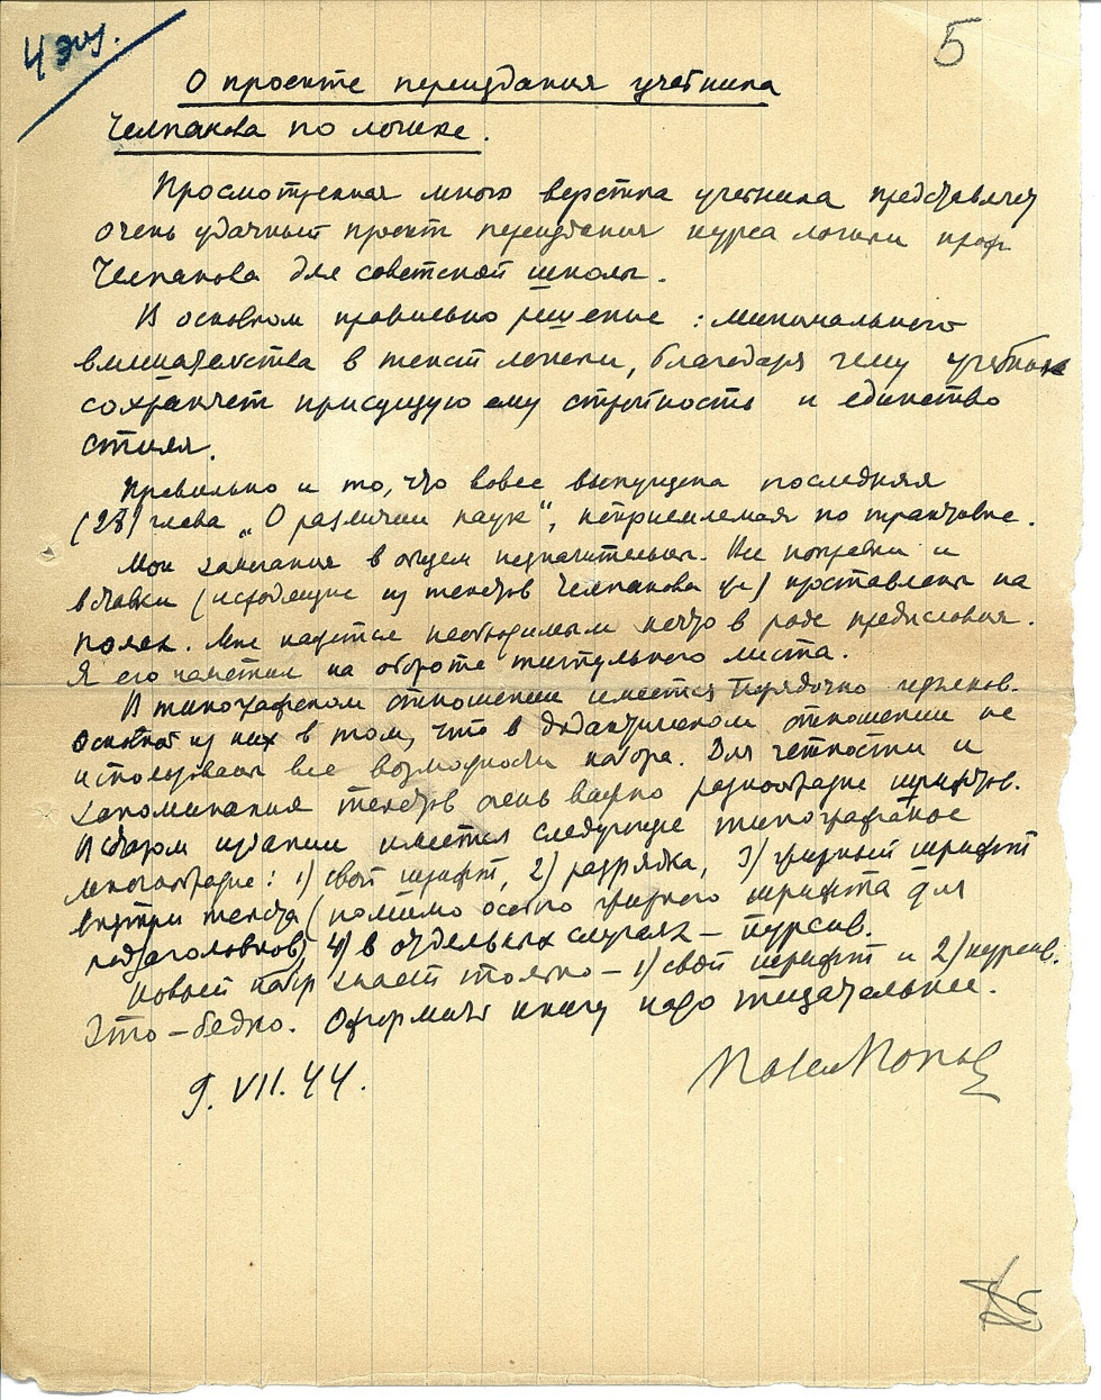 4 экз.
5
О проекте переиздания учебника
Челпакова по логике.
Просмотренная мною верстка учебника представляет
очень удачный проект переиздания курса логики проф
Челпанова для советской школы.
В основном правильно решение: минимального
вмешательства в текст логики, благодаря чему учебник
сохраняет присущую ему стройность и единство
стиля.
Правильно и то, что вовсе выпущена последняя
(28) глава „О различии наук“, неприемлемая по трактовке.
Мои замечания в общем незначительны. Все поправки и
вставки (исходящие из текстов Челпанова же) проставлены на
полях. Мне кажется необходимым нечто в роде предисловия.
Я его наметил на обороте титульного листа.
В типографском отношении имеется порядочно изъянов.
Основной из них в том, что в дидактическом отношении не
использованы все возможности набора. Для четкости и
запоминания текстов очень важно разнообразие шрифтов.
В старом издании имеется следующее типографское
многообразие: 1) свой шрифт, 2) разрядка, 3) жирный шрифт
внутри текста (помимо особо жирного шрифта для
подзаголовков), 4) в отдельных случаях – курсив.
Новый набор знает только – 1) свой шрифт и 2) курсив.
Это – бедно. Оформить книгу надо тщательнее.
9. VII. 44.
Павел Попов